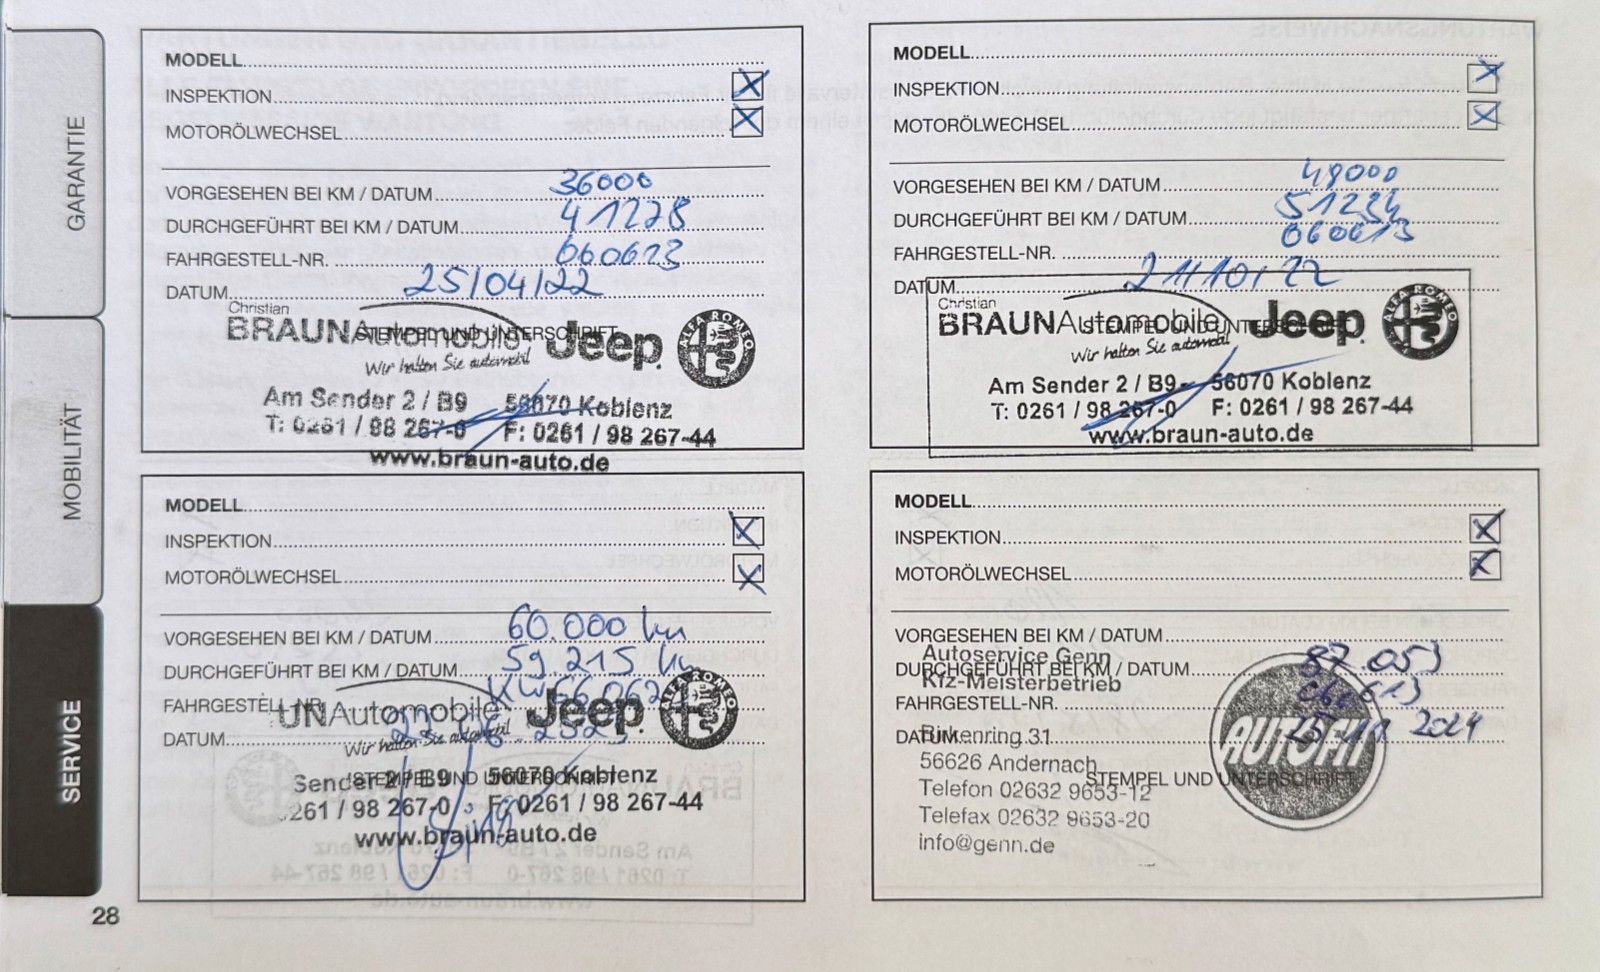 GARANTIE
MOBILITÄT
SERVICE
MODELL
INSPEKTION
MOTORÖLWECHSEL
VORGESEHEN BEI KM / DATUM 36000
DURCHGEFÜHRT BEI KM / DATUM 41228
FAHRGESTELL-NR. 060613
DATUM 25/04/22
STEMPEL UND UNTERSCHRIFT
Christian
BRAUNAutomobile Jeep ALFA ROMEO
Wir halten Sie automobil
Am Sender 2 / B9 56070 Koblenz
T: 0261 / 98 267-0 F: 0261 / 98 267-44
www.braun-auto.de
MODELL
INSPEKTION
MOTORÖLWECHSEL
VORGESEHEN BEI KM / DATUM 48000
DURCHGEFÜHRT BEI KM / DATUM 51234
FAHRGESTELL-NR. 060613
DATUM 21/10/22
STEMPEL UND UNTERSCHRIFT
Christian
BRAUNAutomobile Jeep ALFA ROMEO
Wir halten Sie automobil
Am Sender 2 / B9 56070 Koblenz
T: 0261 / 98 267-0 F: 0261 / 98 267-44
www.braun-auto.de
MODELL
INSPEKTION
MOTORÖLWECHSEL
VORGESEHEN BEI KM / DATUM 60.000 km
DURCHGEFÜHRT BEI KM / DATUM 59.215 km
FAHRGESTELL-NR.
DATUM
STEMPEL UND UNTERSCHRIFT
UNAutomobile Jeep ALFA ROMEO
Wir halten Sie automobil
Sender 2 / B9 56070 Koblenz
0261 / 98 267-0 F: 0261 / 98 267-44
www.braun-auto.de
MODELL
INSPEKTION
MOTORÖLWECHSEL
VORGESEHEN BEI KM / DATUM
DURCHGEFÜHRT BEI KM / DATUM 87.053
FAHRGESTELL-NR. 060613
DATUM
STEMPEL UND UNTERSCHRIFT
Autoservice Genn
Kfz-Meisterbetrieb
Birkenring 31
56626 Andernach
Telefon 02632 9653-12
Telefax 02632 9653-20
info@genn.de
AUTOFIT
28